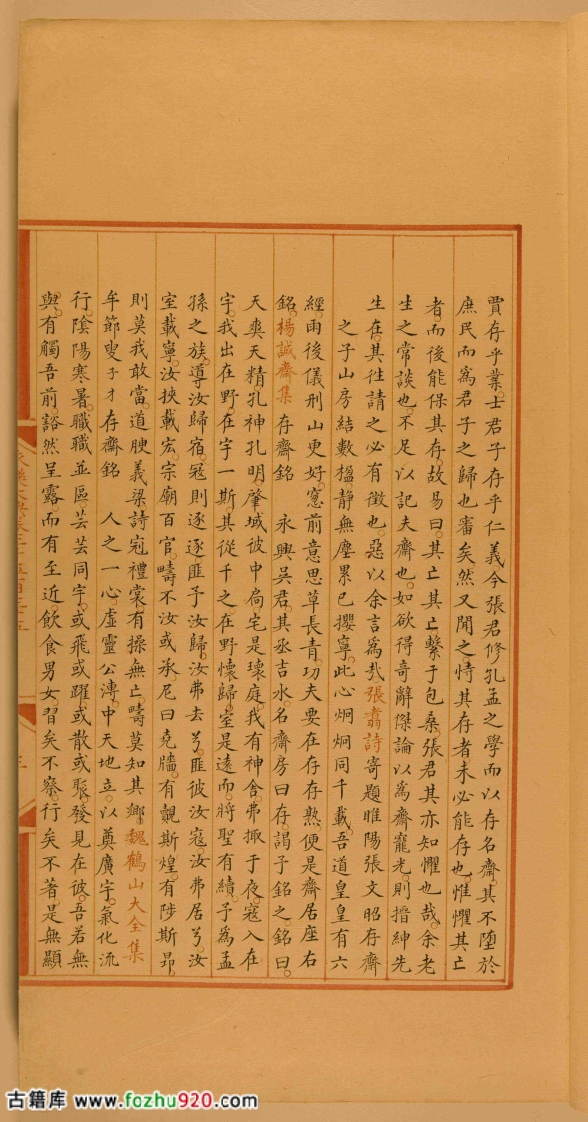 賈存乎業士君子存乎仁義今張君修孔孟之學而以存名齋其不墮於
庶民而爲君子之歸也審矣然又聞之恃其存者未必能存也惟懼其亡
者而後能保其存故易曰其亡其亡繫于包桑張君其亦知懼也哉余老
生之常談也不足以記夫齋也如欲得奇辭傑論以爲齋寵光則搢紳先
生在其往請之必有徵也惡以余言爲㢤張翥詩寄題睢陽張文昭存齋
之子山房結數楹静無塵累已攖寧此心炯炯同千載吾道皇皇有六
經雨後儀刑山更好窓前意思草長青功夫要在存存熟便是齋居座右
銘楊誠齋集存齋銘 永興吳君其丞吉水名齋房曰存謁予銘之銘曰
天奭天精孔神孔明肇域彼中扃宅是壊庭我有神舍弗掫于夜寇入在
宇我出在野在宇一斯其從千之在野懷歸室是遠而將聖有績予為孟
孫之族導汝歸宿寇則逐逐匪予汝歸汝弗去兮匪彼汝寇汝弗居兮汝
室載寧汝挾載宏宗廟百官疇不汝或承尼曰克牆有觀斯煌有陟斯昂
則莫我敢當道腴義粱詩宼禮裳有操無亡疇莫知其鄉魏鶴山大全集
牟節叟子才存齋銘 人之一心虛靈公溥中天地立以奠廣宇氣化流
行隂陽寒暑職職並區芸芸同宇或飛或躍或散或聚發見在彼吾若無
與有觸吾前豁然呈露而有至近飲食男女習矣不察行矣不著是無顯
古籍库 www.fozhu920.com